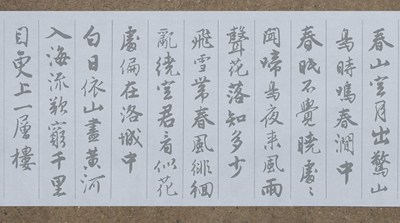 春山空月出驚山
鳥時鳴春澗中
春眠不覺曉處〻
聞啼鳥夜来風雨
聲花落知多少
飛雪帶春風徘徊
亂繞空君看似花
處偏在洛城中
白日依山盡黃河
入海流欲窮千里
目更上一層樓